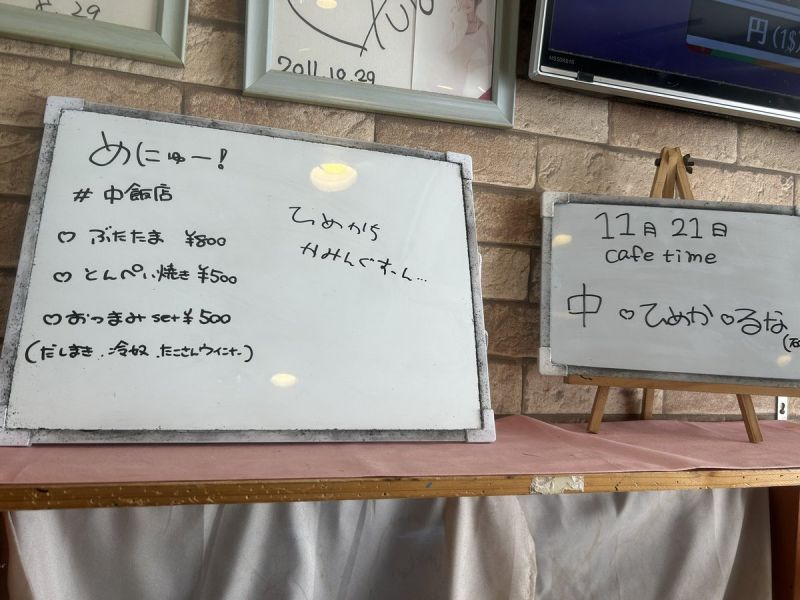 .29
2011.10.29
円(1$
めにゅー!
# 中飯店
♡ ぶたたま ¥800
♡ とんぺい焼き ¥500
♡ おつまみset ¥500
(だしまき、冷奴、たこさんウィンナー)
ひめかs
かみんぐすーん...
11月21日
cafe time
中 ♡ひめか ♡るな